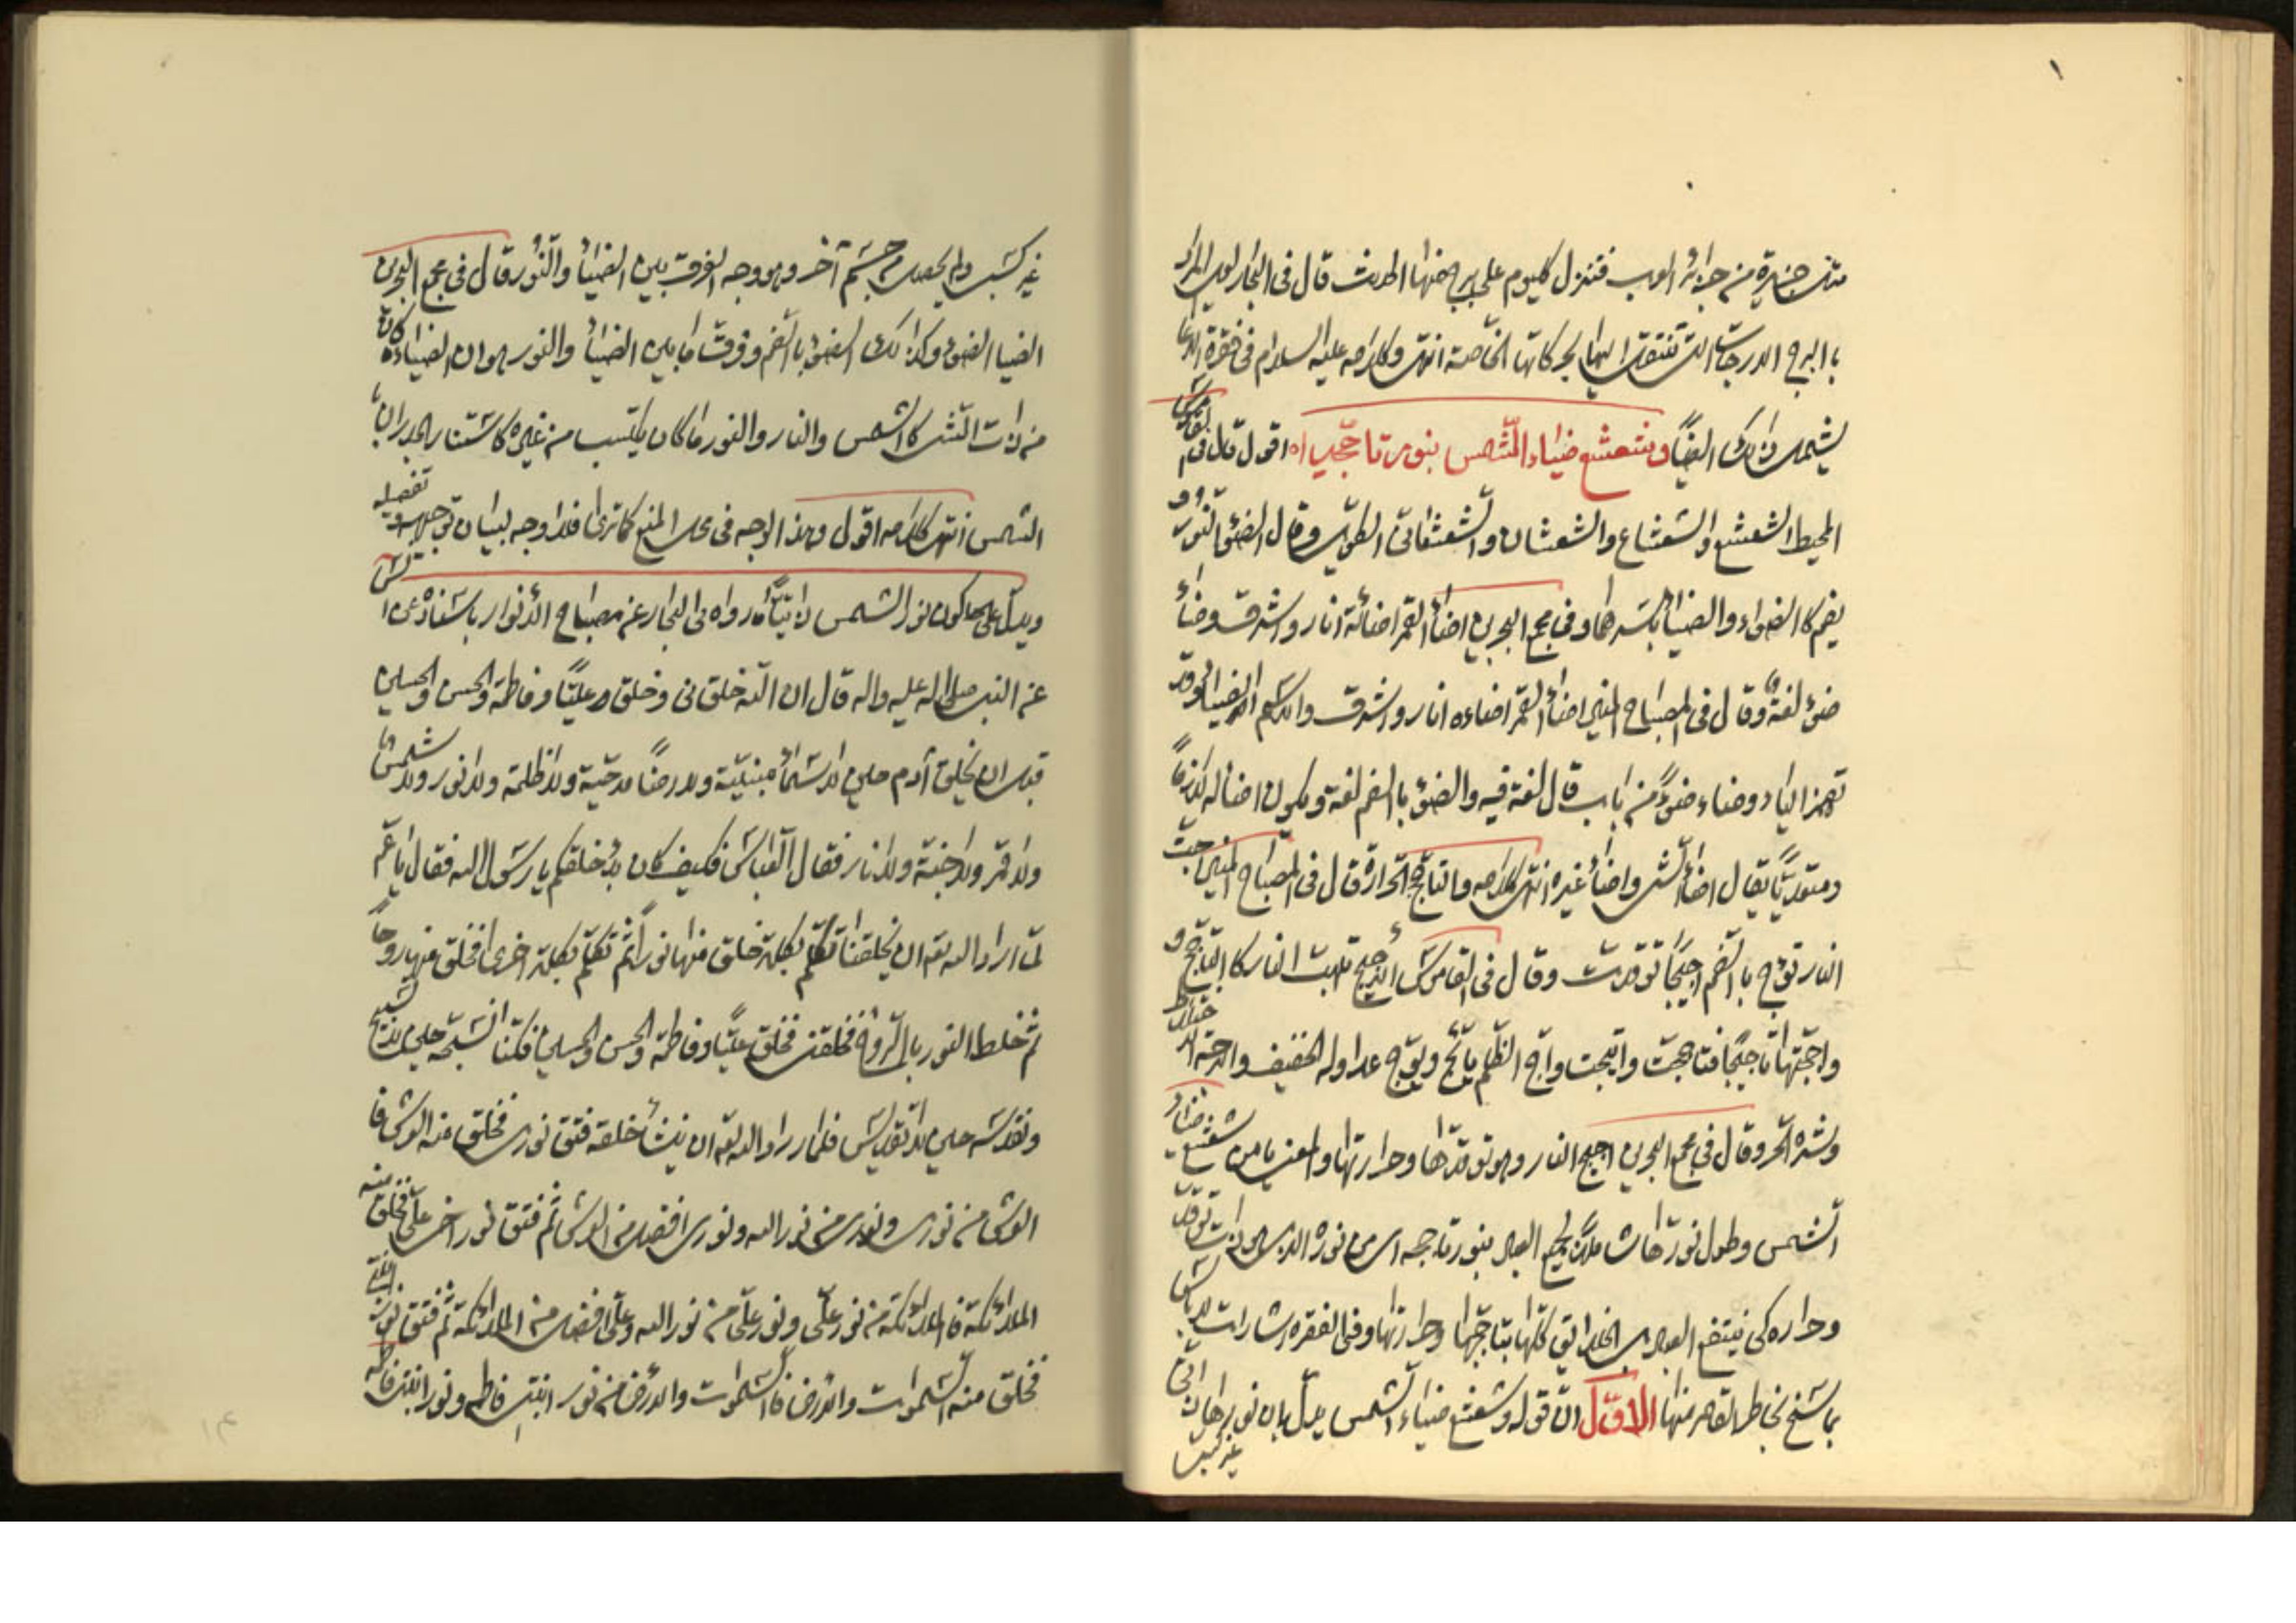 مثل جزيرة من جزائر العرب فتنزل كل يوم على برج منها الحديث قال في البحار لعل المراد
بالبرج الدرجات التي تنتقل اليها بحركاتها الخاصة انتهى وكلامه عليه السلام في فقرة الدعا
يشمل ذلك ايضا وشعشع ضياء الشمس بنور تاججه اه اقول قال في القاموس
المحيط الشعشع والشعشاع والشعشان والشعشعاني الطويل وقال الضوء النور و
يضم كالضواء والضياء بكسرهما وفي مجمع البحرين اضاء القمر اضائة انار واشرق وضاء
ضوء لغة وقال في المصباح المنير اضاء القمر اضاءه انار واشرق والاسم الضياء وقد
تهمز الياء وضاء ضوءً من باب قال لغة فيه والضوء بالضم لغة ويكون اضاء لازمًا
ومتعديًا يقال اضاء الشئ واضاء غيره انتهى كلامه والتاجج الحرارة قال في المصباح المنير اجت
النار تؤج بالضم اجيجًا توقدت وقال في القاموس الاجيج تلهب النار كالتاجج و
واججتها تاجيجًا فتاججت وائتجت واج الظليم يائج ويؤج عدا وله حفيف والاجة الاختلاط
وشدة الحر وقال في مجمع البحرين اجيج النار وهو توقدها وحرارتها والمعنى يا من شعشع ضياء
الشمس وطول نورها شاملًا لجميع العالم بنور تاججه اى من نوره الذى هو ذات توقد
وحراره كى ينتفع العباد من الخلائق كلها بتاججها وحرارتها وفي الفقره اشارات لا باس
بما سنح بخاطر القاصر منها الاول ان قوله وشعشع ضياء الشمس يدل بان نورها ذاتي
غير كسبى
غير كسبى ولم يحصل من جسم آخر وهو وجه الفرق بين الضياء والنور قال في مجمع البحرين
الضيا الضوء وكذلك الضوء بالضم وفرق ما بين الضياء والنور هو ان الضياء ما كان
من ذات الشئ كالشمس والنار والنور ما كان يكتسب من غيره كاستنار الجدران با
الشمس انتهى كلامه اقول وهذا الوجه في محل المنع كما ترى فلا وجه لبيان تفصيله
ويدل على كون نور الشمس ذاتيًا ما رواه في البحار عن مصباح الانوار باسناده عن انس
عن النبى صلى الله عليه واله قال ان الله خلقنى وخلق عليًا وفاطمة والحسن والحسين
قبل ان يخلق آدم حين لا سماء مبنيّة ولا ارضًا مدحيّة ولا ظلمة ولا نور ولا شمسًا
ولا قمر ولا جنة ولا نار فقال العباس فكيف كان بدء خلقكم يا رسول الله فقال يا عم
لما اراد الله تع ان يخلقنا تكلم بكلمة خلق منها نورًا ثم تكلم بكلمة اخرى فخلق منها روحًا
ثم خلط النور بالروح فخلقنى فخلق عليًا وفاطمة والحسن والحسين فكنا نسبحه حين لا تسبيح
ونقدسه حين لا تقديس فلما اراد الله تع ان ينشأ خلقه فتق نورى فخلق منه العرش فا
العرش من نورى ونورى من نور الله ونورى افضل من العرش ثم فتق نور اخى على فخلق منه
الملائكة فالملائكة من نور علّى ونور علّى من نور الله وعلّى افضل من الملائكة ثم فتق نور ابنتى
فخلق منه السموات والارض فالسموات والارض من نور ابنتى فاطمه ونور ابنتى فاطمه